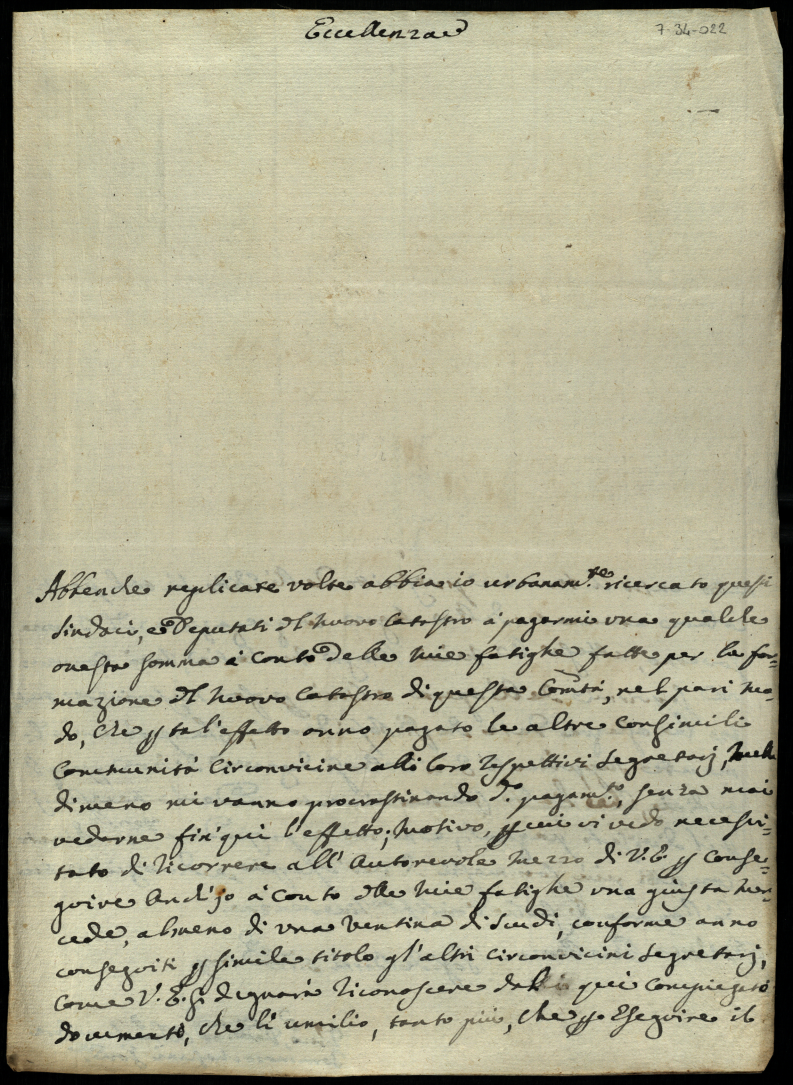 Eccellenza
7-34-022
Abbenche replicate volte abbia io urbanam.te ricercato questi
Sindaci, e Deputati del nuovo Catastro à pagarmi una qualche
onesta somma à conto delle mie fatighe fatte per la for-
mazione del nuovo Catastro di questa Com.tà, nel pari mo-
do, che p tal'effetto anno pagato le altre consimili
Communità circonvicine alli loro respettivi Segretarj,
dimeno mi vanno procrastinando d.o pagam.to, senza mai
vederne fin'qui l'effetto; motivo, p cui vi vedo necessi-
tato di ricorrere all'Autorevole mezzo di V.E. p conse-
guire anch'io à conto delle mie fatighe una giusta mer-
cede, almeno di una ventina di scudi, conforme anno
conseguiti p simile titolo gl'altri circonvicini Segretarj,
come V.E. si degnarà riconoscere dal qui compiegato
documento, che li umilio, tanto più, che p eseguire il